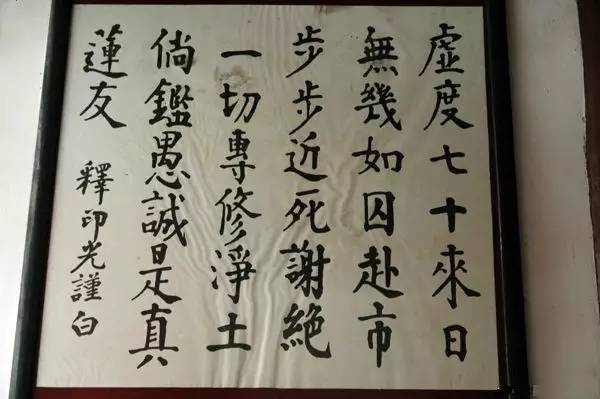 虛度七十來日
無幾如囚赴市
步步近死謝絕
一切專修淨土
倘鑑愚誠是真
蓮友
釋印光謹白